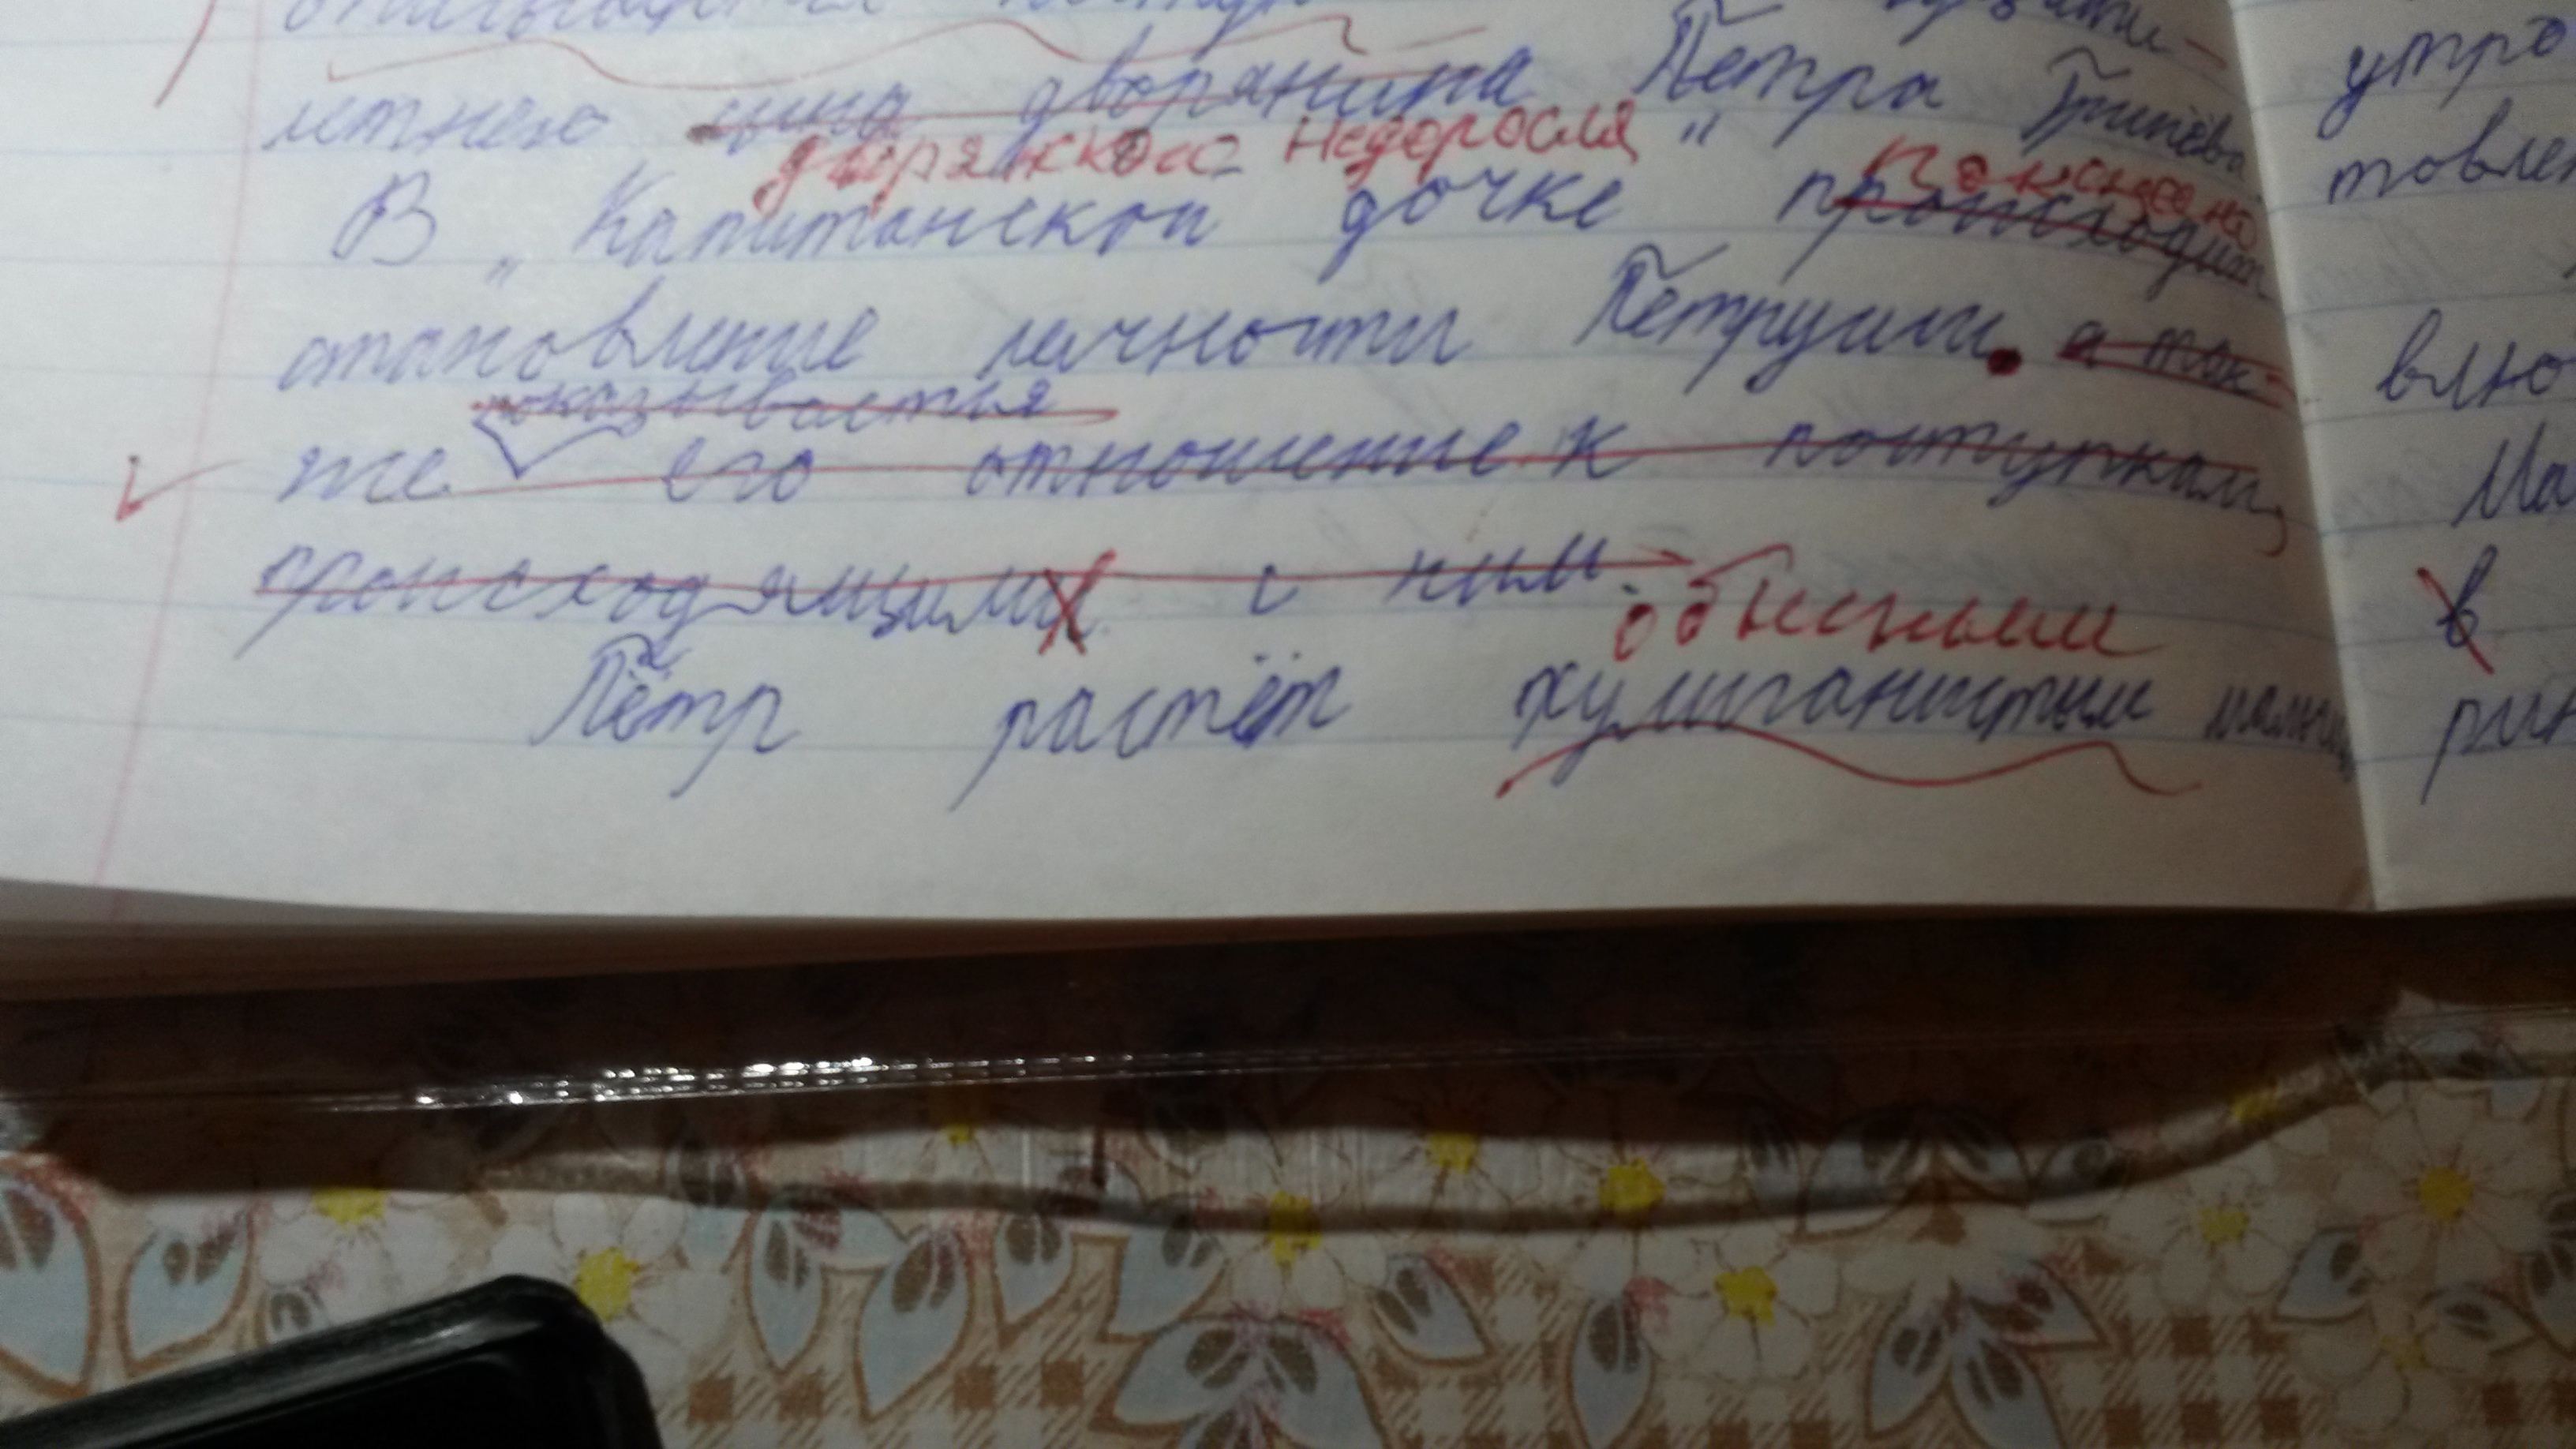 летнего сына дворянина Петра Гринёва
дворянского недоросля
В „Капитанской дочке" происходит
показано
становление личности Петруши. а так-
показывается
же его отношение к поступкам,
происходящими с ним.
обычным
Пётр растёт хулиганистым
утро
товлен
влю
Ма
в